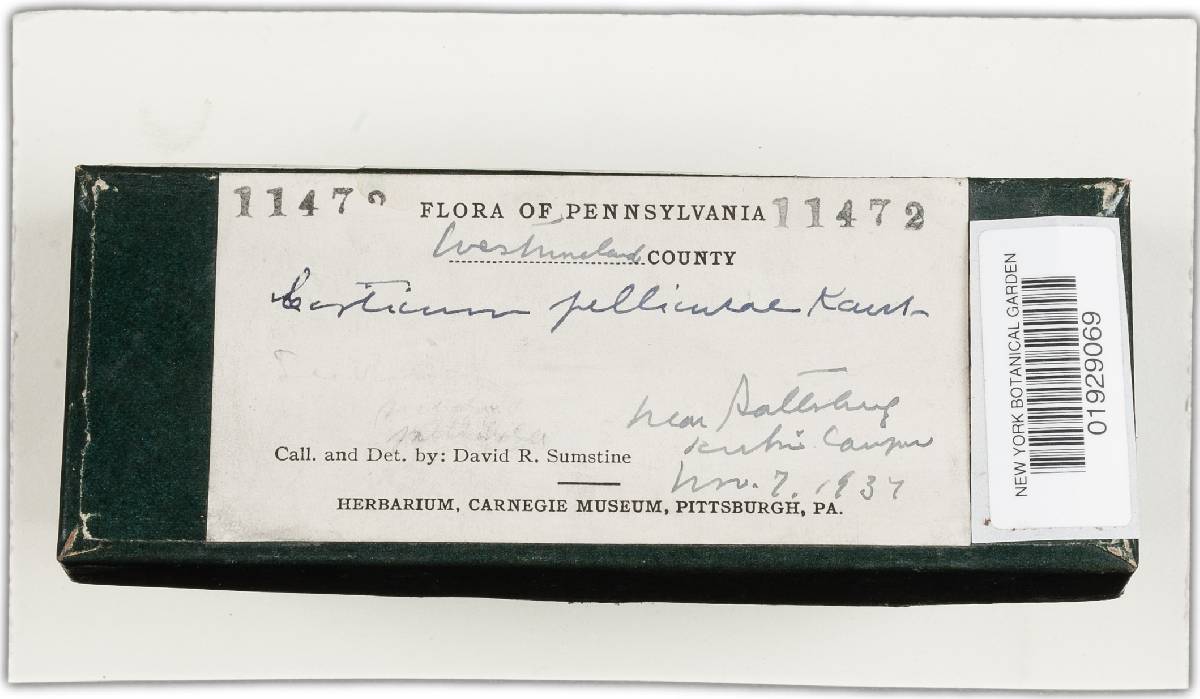 11472 FLORA OF PENNSYLVANIA 11472
Westmoreland COUNTY
Corticium Karst
near
Call. and Det. by: David R. Sumstine
Nov. 7. 1937
HERBARIUM, CARNEGIE MUSEUM, PITTSBURGH, PA.
NEW YORK BOTANICAL GARDEN
01929069